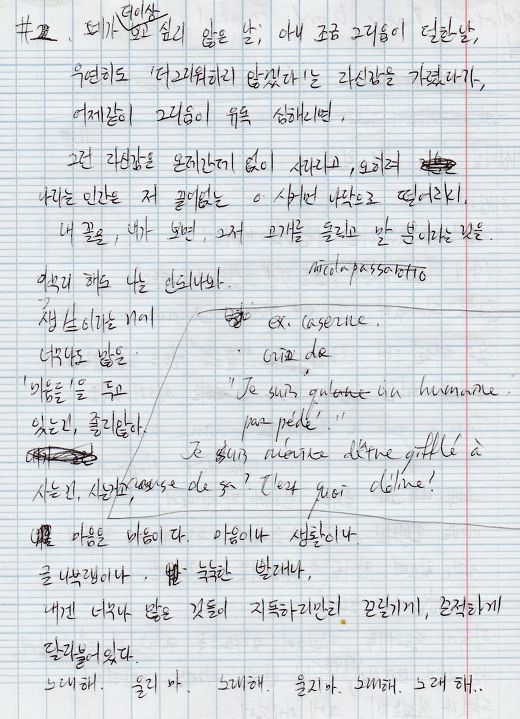 더이상
#2. 네가 보고 싶지 않은 날, 아니 조금 그리움이 덜한 날,
우연히도 '더 그리워하지 않겠다'는 자신감을 가졌다가,
어제같이 그리움이 유독 심해지면,
그런 자신감은 온데간데 없이 사라지고, 오히려
나라는 인간은 저 끝없는 이 시커먼 나락으로 떨어지지.
내 꼴을, 내가 보면, 그저 고개를 돌리고 말 뿐이라는 것을.
nicola passarotto
해도 나는 안되나봐.
ex. caserne.
너무나도 많은
crie de
'마음들'을 두고
"Je suis qu'une un humaine.
있는건, 졸리잖아.
par pédé'."
Je suis d'être gifflé à
사는건, 사는건, cause de ça? C'est quoi
마음은 마음이다. 마음이나 생활이나
글 나부랭이나, 눅눅한 빨래나,
내겐 너무나 많은 것들이 지독하리만치 끈질기게, 끈적하게
달라붙어 있다.
노래해. 울지마. 노래해. 울지마. 노래해. 노래해..